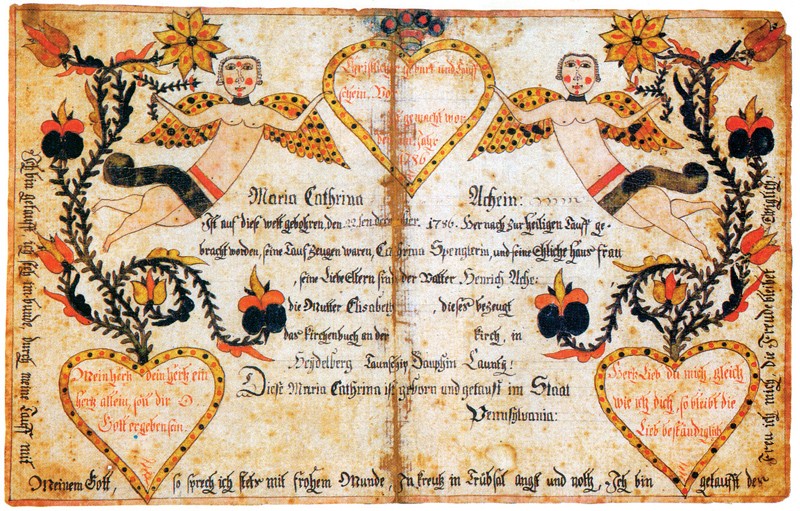 Christlicher geburt und Tauf
schein. Vor
gemacht wor
den im Jahr
1786
Maria Cathrina Achein:
Ist auf diese welt gebohren, den 22sten december. 1786. Hernach zur heiligen Tauff ge-
bracht worden, seine Tauf zeugen waren, Cathrina Spenglerin, und seine Ehliche haus frau
, seine Liebe Eltern sind der Vatter Henrich Ache:
die Mutter Elisabeth , dieses bezeugt
das Kirchenbuch an der kirch, in
Heydelberg Taunschip Dauphin Caunty:
Diese Maria Cathrina ist geborn und getauft im Staat
Pennsylvania:
Mein herk dein herk ein
herk allein, soll dir O.
Gott ergeben sein.
Herk Lieb du mich, gleich
wie ich dich, so bleibt die
Lieb beständiglich
Ich bin getauft ich steh im bunde, durch meine Tauff mit
Meinem Gott, so sprech ich stehts mit frohem Munde, In kreutz in Trübsal angst und noth, Ich bin getaufft des
Freu ich mich Die Freude bleibet Ewiglich!